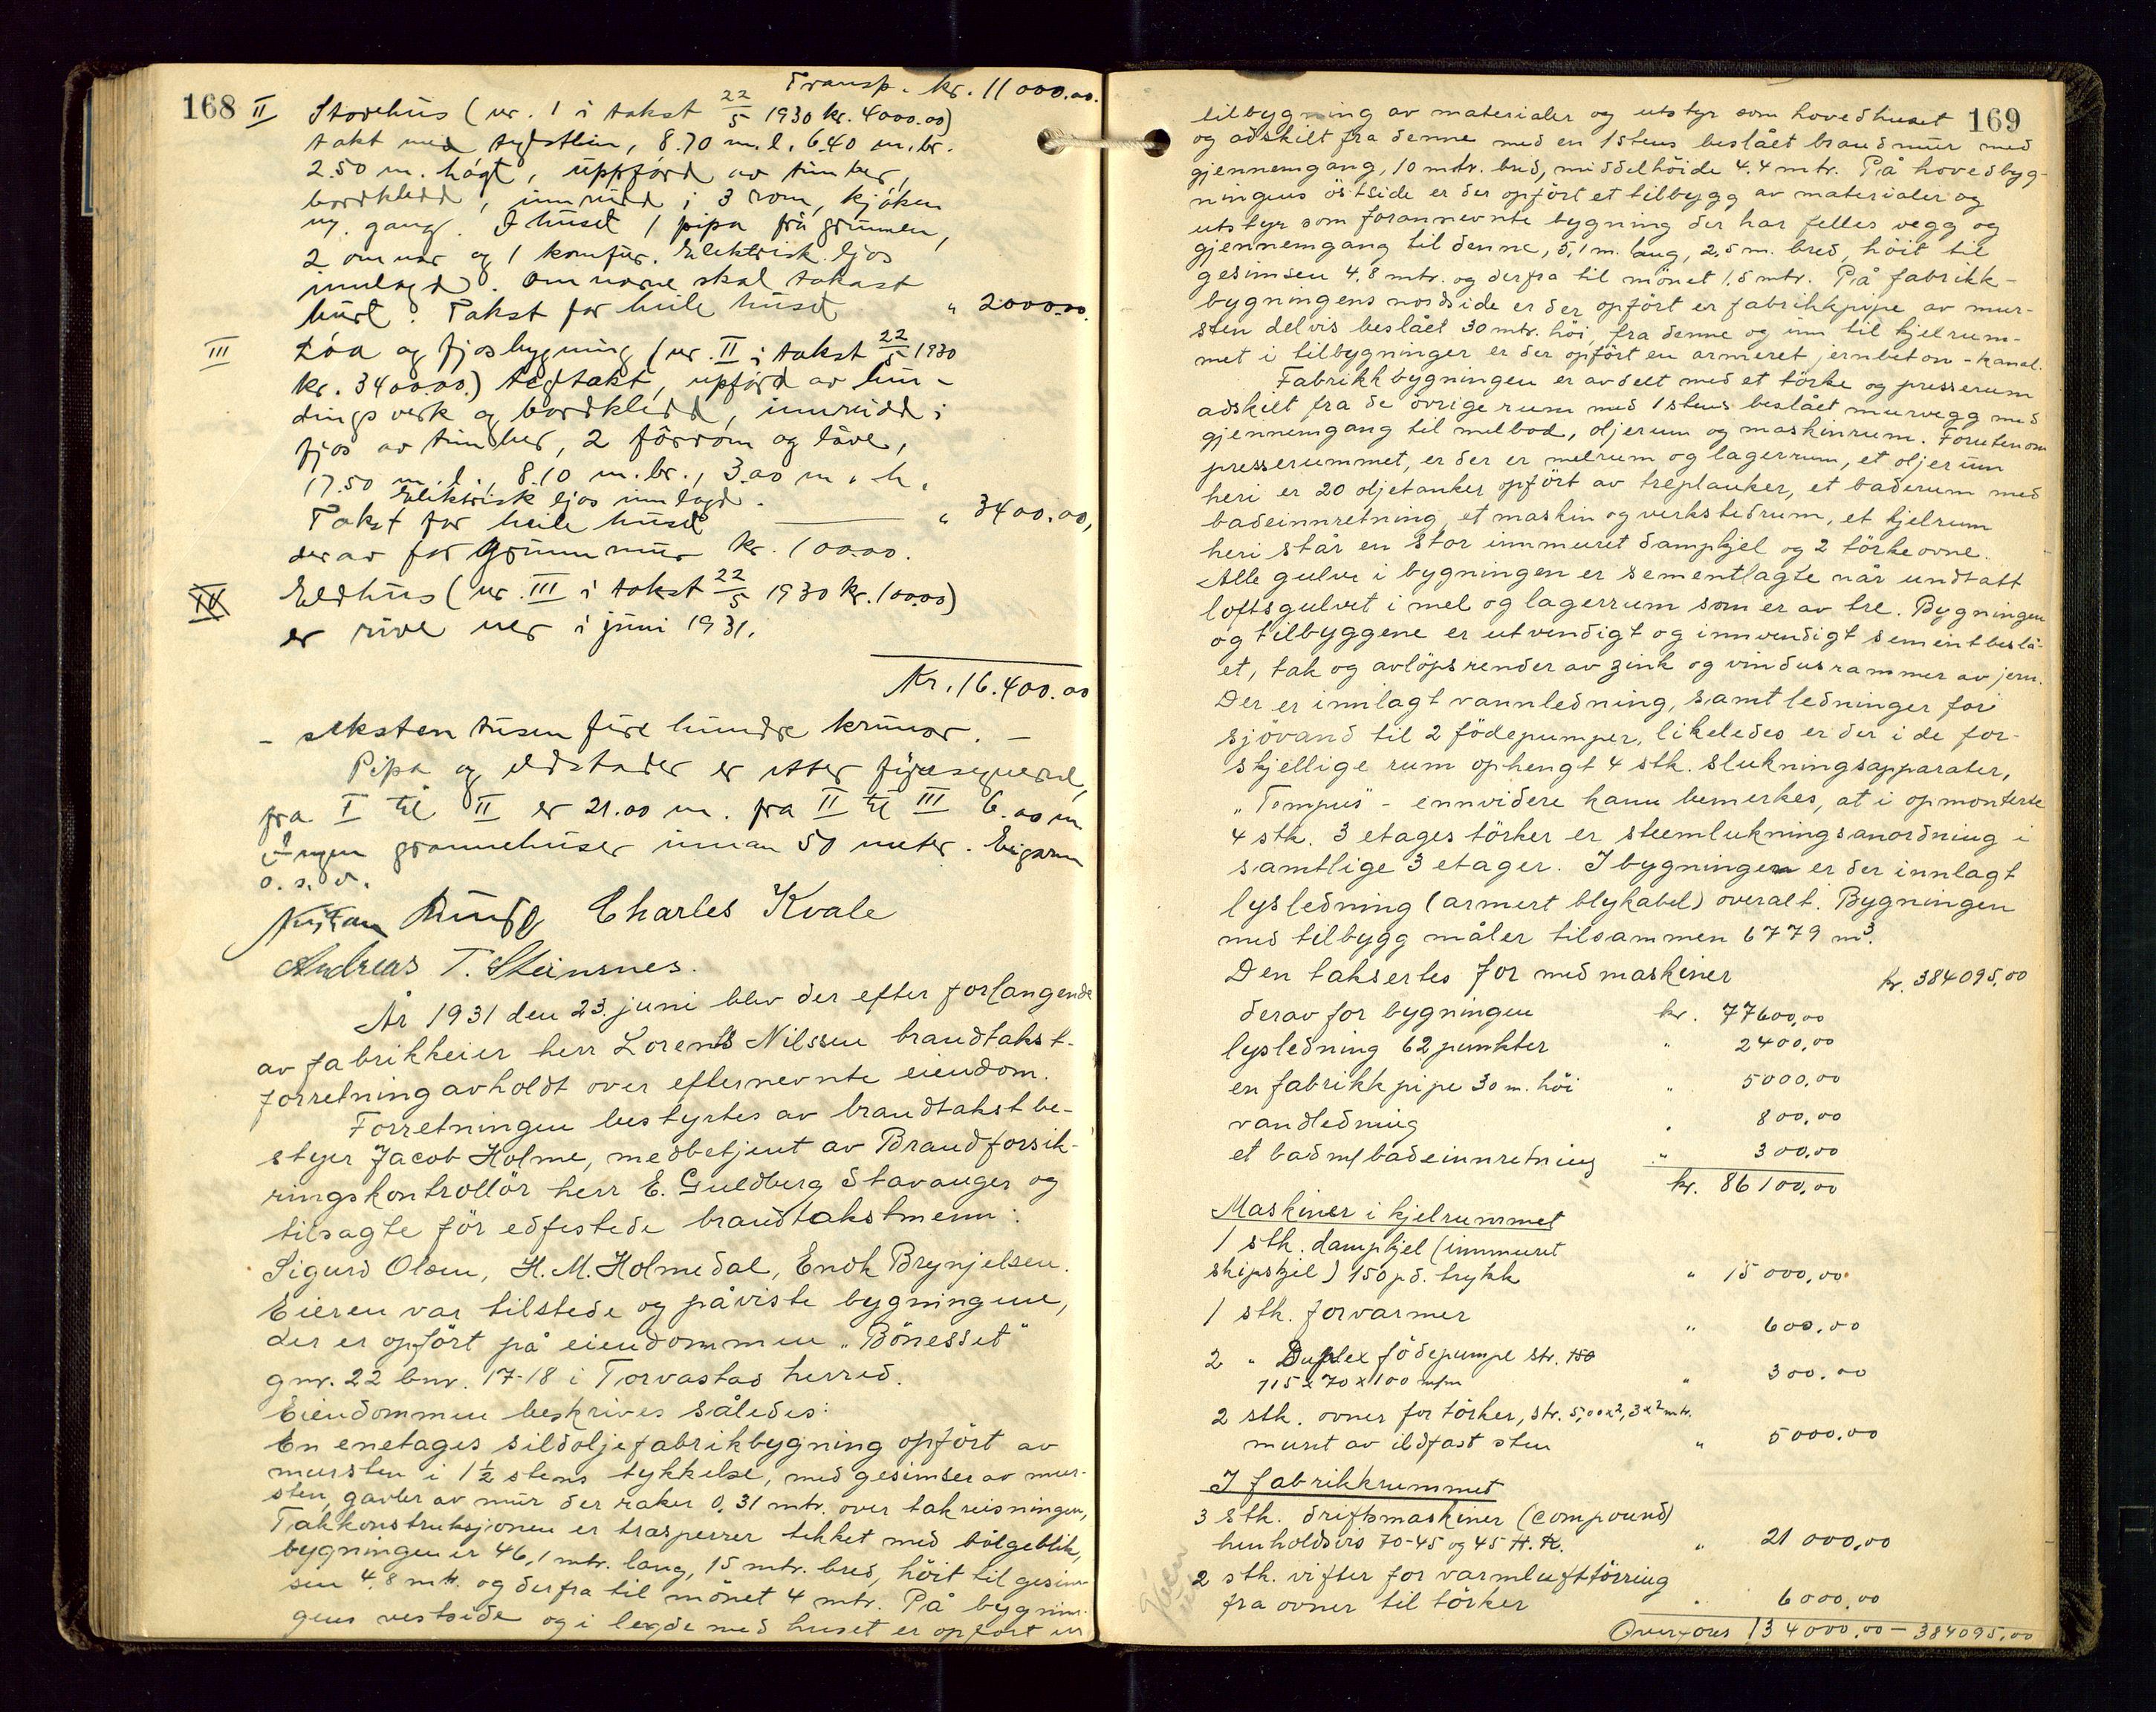 168
Transp. kr. 11 000.00.
II Stovehus (nr. 1 i takst 22/5 1930 kr. 4000.00)
takt med tegltein, 8.70 m. l. 6.40 m. br.
2.50 m. høgt, uppförd av timber,
bordkledd, innreidd i 3 rom, kjöken
og gang. I huset 1 pipa frå grunnen,
2 omnar og 1 komfur. Elektrisk ljos
innlagd. Omnarne skal takast
burt. Takst for heile huset " 2000.00.
III Löa og fjosbygning (nr. II i takst 22/5 1930
kr. 3400.00.) tegltakt, uppförd av bin-
dingsverk og bordkledd, innreidd i
fjos av timber, 2 fôrrom og låve,
17.50 m. l., 8.10 m. br., 3.00 m. h.
Elektrisk ljos innlagd.
Takst for heile huset " 3400.00,
derav for grunnmur kr. 100.00.
IV Eldhus (nr. III i takst 22/5 1930 kr. 100.00)
er rive ner i juni 1931.
Kr. 16.400.00
- seksten tusen fire hundre krunor. -
Pipa og eldstader er etter
fra I til II er 21.00 m. fra II til III 6.00 m
Ingen grannehuser innan 50 meter.
o. s. v.
Charles Kvale
Andreas T. Steinsnes.
År 1931 den 23. juni blev der efter forlangende
av fabrikkeier herr Lorents Nilssen brandtakst-
forretning avholdt over efternevnte eiendom.
Forretningen bestyrtes av brandtakstbe-
styer Jacob Holme, medbetjent av Brandforsik-
ringskontrollör herr E. Guldberg Stavanger og
tilsagte för edfestede brandtakstmenn:
Sigurd Olsen, H. M. Holmedal, Endk Brynjelsen.
Eieren var tilstede og påviste bygningene,
der er opfört på eiendommen "Bönesset"
gnr. 22 bnr. 17-18 i Torvastad herred.
Eiendommen beskrives således:
En enetages sildoljefabrikbygning opfört av
mursten i 1½ stens tykkelse, med gesimser av mur-
sten, gavler av mur der raker 0,31 mtr. over takreisningen,
Takkonstruksjonen er trasperrer tekket med bölgeblik,
bygningen er 46,1 mtr. lang, 15 mtr. bred, höit til gesim-
sen 4,8 mtr. og derfra til mönet 4 mtr. På bygnin-
gens vestside og i legde med huset er opfört en
169
tilbygning av materialer og utstyr som hovedhuset
og adskilt fra denne med en 1 stens beslået brandmur med
gjennemgang, 10 mtr. bred, middelhöide 4.4 mtr. På hovedbyg-
ningens östside er der opfört et tilbygg av materialer og
utstyr som forannevnte bygning der har felles vegg og
gjennemgang til denne, 5,1 m. lang, 2,5 m. bred, höit til
gesimsen 4,8 mtr. og derfra til mönet 1,5 mtr. På fabrikk-
bygningens nordside er der opfört er fabrikkpipe av mur-
sten delvis beslået 30 mtr. höi, fra denne og inn til kjelrum-
met i tilbygninger er der opfört en armeret jernbeton-kanal.
Fabrikkbygningen er avdelt med et törke og presserum
adskilt fra de övrige rum med 1 stens beslået murvegg med
gjennemgang til melbod, oljerum og maskinrum. Forutenom
presserummet, er der er melrum og lagerrum, et oljerum
heri er 20 oljetanker opfört av treplanker, et baderum med
badeinnretning, et maskin og verkstedrum, et kjelrum
heri står en stor innmuret dampkjel og 2 törkeovne.
Alle gulve i bygningen er sementlagte når undtatt
loftsgulvet i mel og lagerrum som er av tre. Bygningen
og tilbyggene er utvendigt og innvendigt sementbeslå-
et, tak og avlöpsrender av zink og vindusrammer av jern.
Der er innlagt vannledning, samt ledninger for
sjövand til 2 födepumper, likeledes er der i de for-
skjellige rum ophengt 4 stk. slukningsapparater,
"Tempus" - ennvidere kann bemerkes, at i opmonterte
4 stk. 3 etages törker er steemlukningsanordning i
samtlige 3 etager. I bygningen er der innlagt
lysledning (armert blykabel) overalt. Bygningen
med tilbygg måler tilsammen 6779 m³.
Den takseres for med maskiner kr. 384095,00
derav for bygningen kr. 77600,00
lysledning 62 punkter " 2400,00
en fabrikkpipe 30 m. höi " 5000,00
vandledning " 800,00
et bad m/ badeinnretning " 300,00
kr. 86100,00
Maskiner i kjelrummet
1 stk. dampkjel (innmuret
skipskjel) 150 pd. trykk " 15 000,00
1 stk. forvarmer " 600,00
2 " Duplex födepumpe str. 150
115 x 70 x 100 m/m " 300,00
2 stk. ovner for törker, str. 5,00x2,3x2 mtr.
muret av ildfast sten " 5000,00
I fabrikkrummet
3 stk. driftsmaskiner (compound)
henholdsvis 70-45 og 45 H.K. " 21 000,00
2 stk. vifter for varmluftförring
fra ovner til törker " 6000,00
Overföres 134000,00 - 384095,00